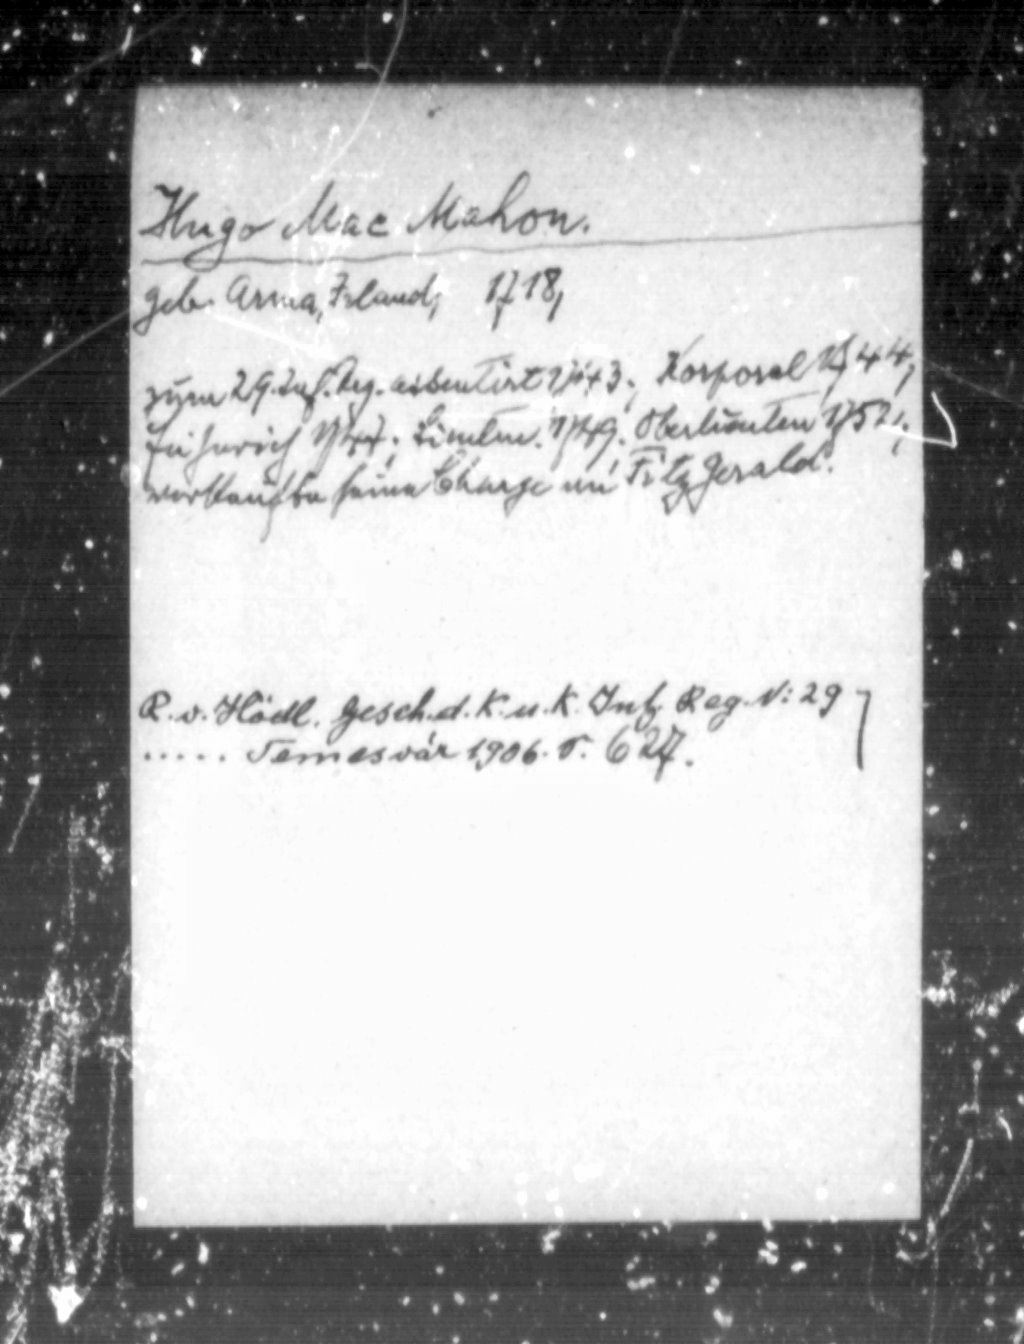 Hugo Mac Mahon.
geb. Arma, Irland, 1718,
zum 29. Inf. Reg. assentirt 1743; Korporal 1744,
Fähnrich 1747; 1749. 1752;
verkaufte seine Charge an Fitzgerald.
R. v. Hödl. Gesch. d. K. u. K. Inf. Reg. N: 29
..... Temesvár 1906. S. 627.